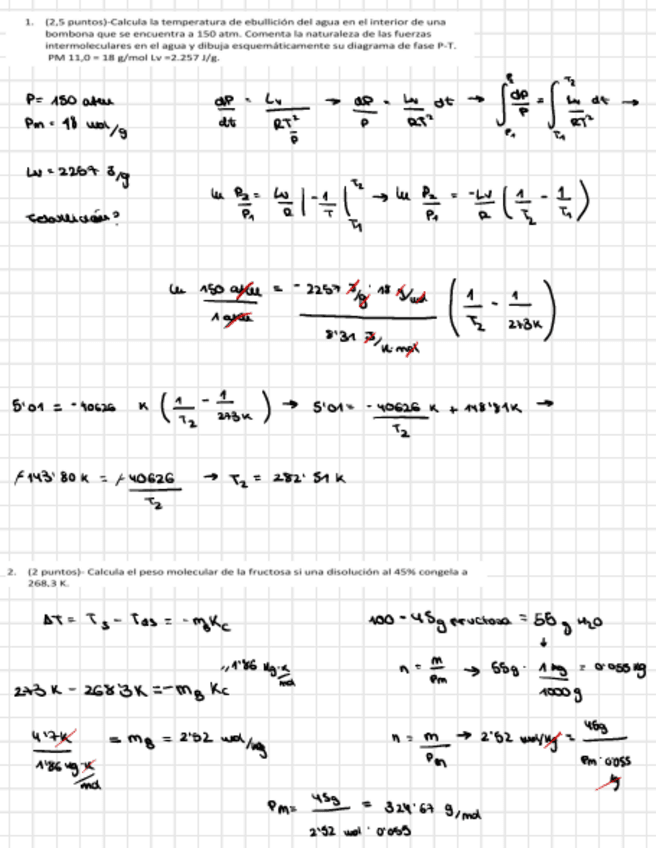 1. (2,5 puntos)-Calcula la temperatura de ebullición del agua en el interior de una
bombona que se encuentra a 150 atm. Comenta la naturaleza de las fuerzas
intermoleculares en el agua y dibuja esquemáticamente su diagrama de fase P-T.
PM 11,0 = 18 g/mol Lv =2.257 J/g.
P= 150 atm
Pm = 18 mol/g
Lv = 2257 J/g
Tebullición?
dP/dt = Lv/(RT²/P) → dP/P = Lv/RT² dt → ∫P₁ᴾ dP/P = ∫T₁ᵀ² Lv/RT² dt →
ln P₂/P₁ = Lv/R |-1/T|T₁ᵀ² → ln P₂/P₁ = -Lv/R (1/T₂ - 1/T₁)
ln 150 atm/1 atm = - 2257 J/g · 18 g/mol / 8'31 J/K·mol (1/T₂ - 1/273K)
5'01 = - 40626 K (1/T₂ - 1/273K) → 5'01 = - 40626 K/T₂ + 148'81K →
-143'80 K = -40626/T₂ → T₂ = 282'51 K
2. (2 puntos)- Calcula el peso molecular de la fructosa si una disolución al 45% congela a
268,3 K.
ΔT = Ts - Tds = - mB Kc
273 K - 268'3K = -mB Kc
1'86 Kg·K/mol
4'7K / 1'86 kg·K/mol = mB = 2'52 mol/kg
100 - 45g fructosa = 55 g H₂O
n = m/Pm → 55g · 1 kg/1000g = 0'055 kg
n = m/Pm → 2'52 mol/kg = 45g / Pm · 0'055 kg
Pm = 45g / 2'52 mol · 0'055 = 324'67 g/mol